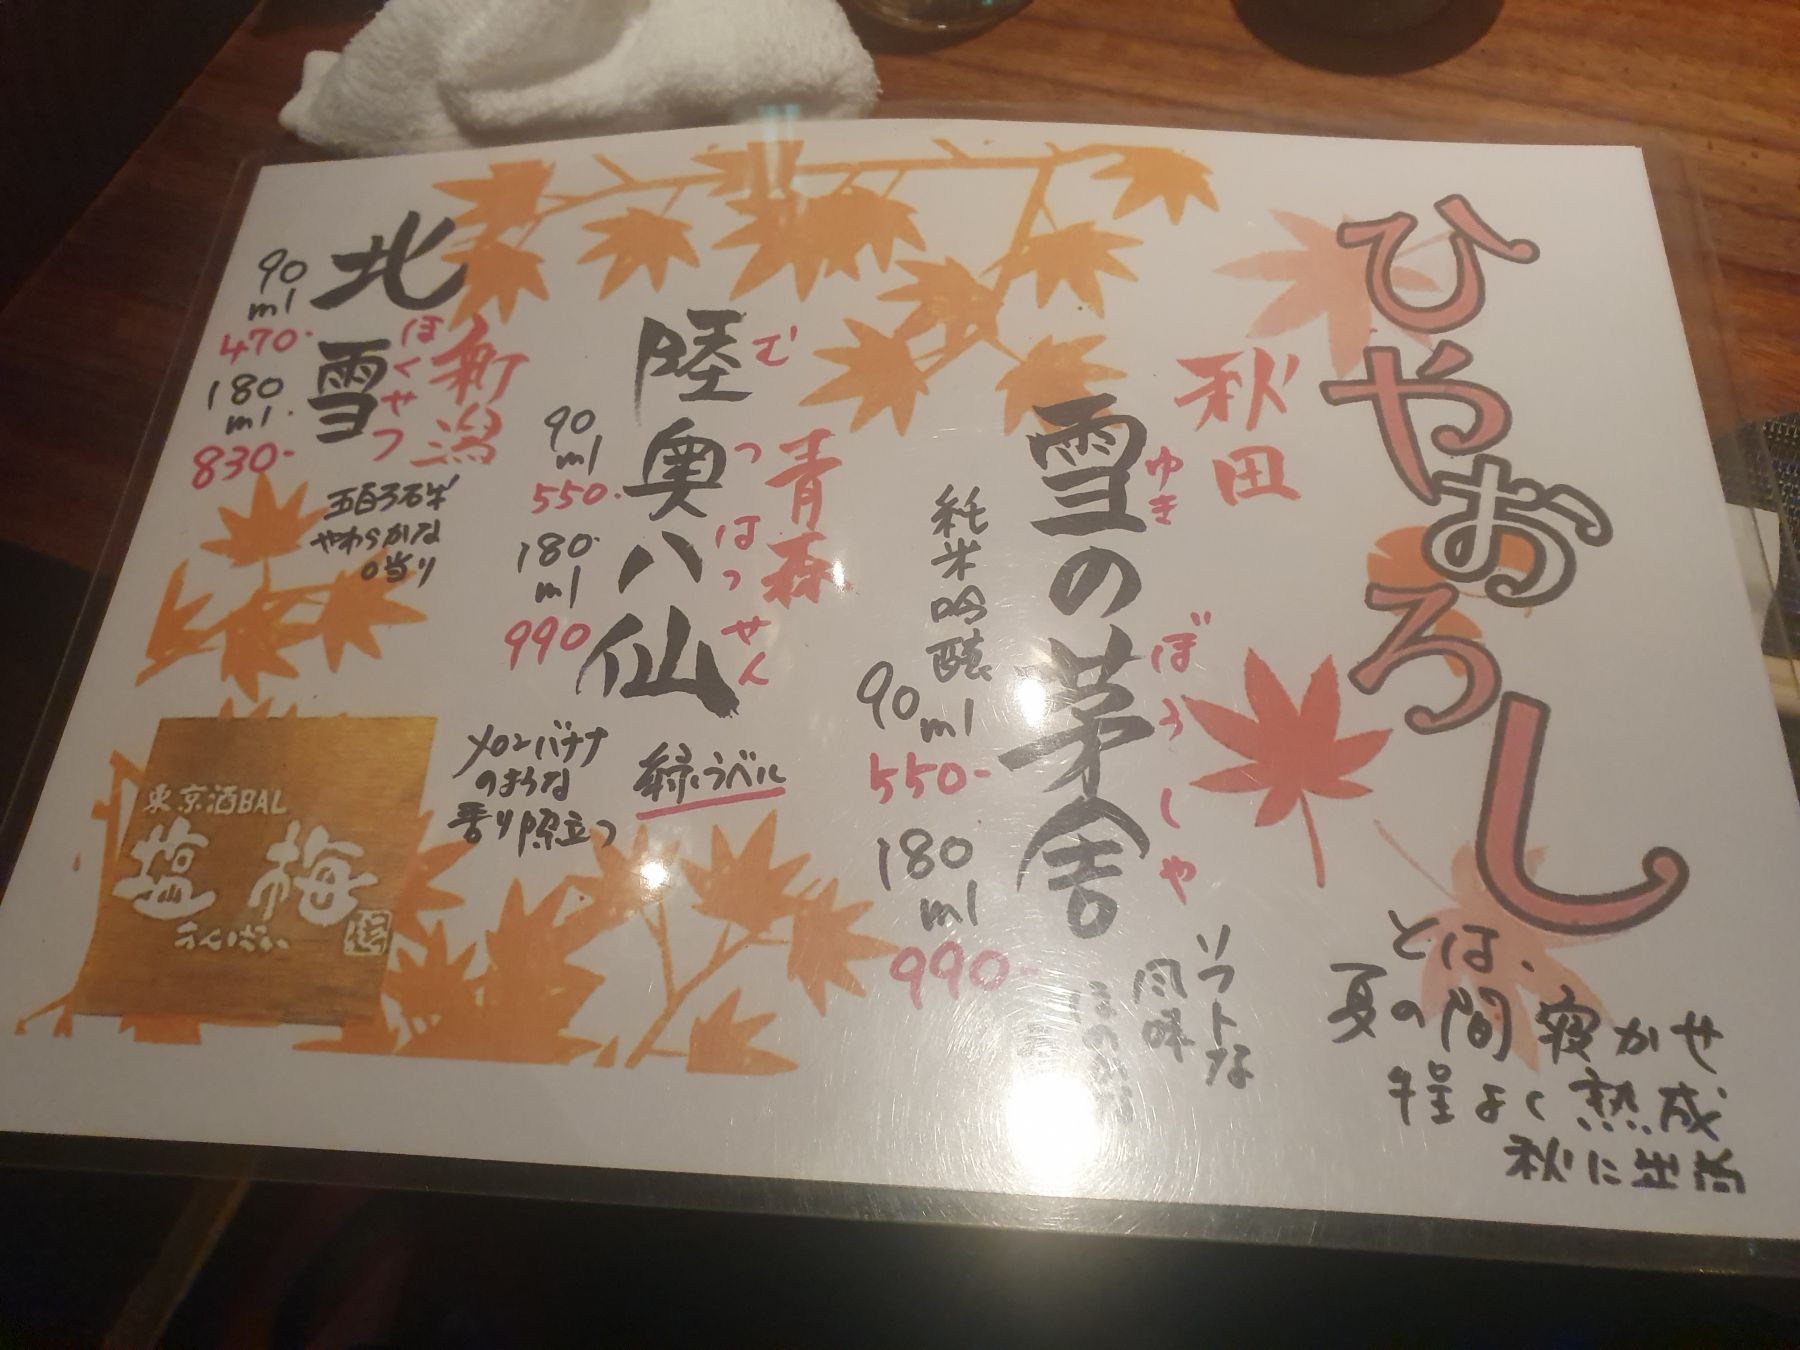 ひやおろし
とは、
夏の間寝かせ
程よく熟成
秋に出荷
秋田
雪の茅舎
ゆき ぼうしゃ
純米吟醸
90ml
550-
180ml
990-
ソフトな
風味
青森
陸奥八仙
むつ はっせん
90ml
550-
180ml
990
緑ラベル
メロンバナナ
のような
香り際立つ
新潟
北雪
ほくせつ
90ml
470-
180ml
830-
五百万石米
やわらかな
口当り
東京酒BAL
塩梅
あんばい